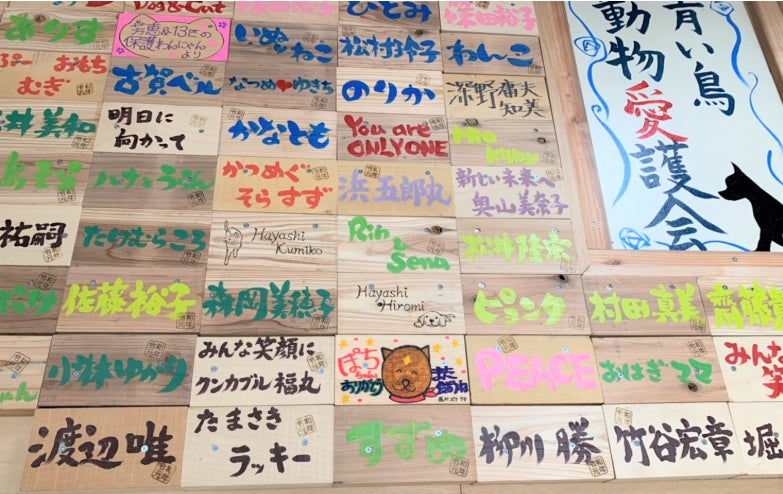 Dog & Cat
ひとみ
篠田裕子
ありす
保護わんにゃん
より
いぬ
ねこ
松村玲子
わんこ
おもち
むぎ
古賀ベル
なつめ♥ゆきち
のりか
深野
知美
井美和
明日に
向かって
かなとも
You are
ONLY ONE
Mio
かつめぐ
そらすず
浜五郎丸
新しい未来へ
奥山美奈子
祐嗣
たけむらころ
Hayashi
Kumiko
Rin &
Sena
松井隆宏
佐藤裕子
森岡美穂子
Hayashi
Hiromi
ピョンタ
村田真美
齋藤
小林ゆかり
みんな笑顔に
クンカブル福丸
ぽち
ありがとう
PEACE
おはぎママ
みんな
笑
渡辺 唯
たまさき
ラッキー
すずめ
柳川 勝
竹谷宏章
堀
青い鳥
動物愛護会